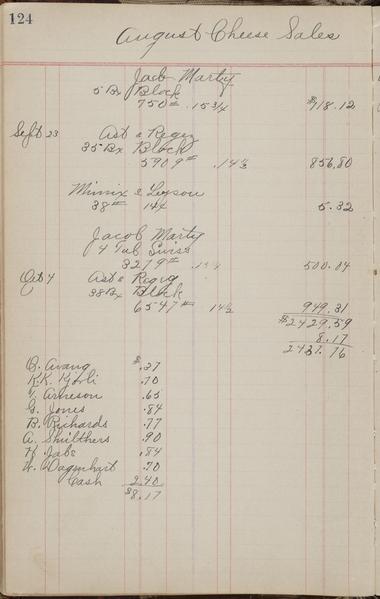 124
August Cheese Sales
Jacob Marty
5 Bx Block
750# .15 3/4 $118.12
Sept 23 Ast & Regez
35 Bx Block
5909# .14 1/2 856.80
38# 14¢ 5.32
Jacob Marty
4 Tub Swiss
3279# 500.04
Oct 4 Ast & Regez
38 Bx Block
6547# 14 1/2 949.31
$2429.59
8.17
2437.76
$.27
K.K. .70
Arneson .65
G. Jones .84
B. Richards .77
A. .90
H. Jabs .84
.70
Cash 2.40
$8.17